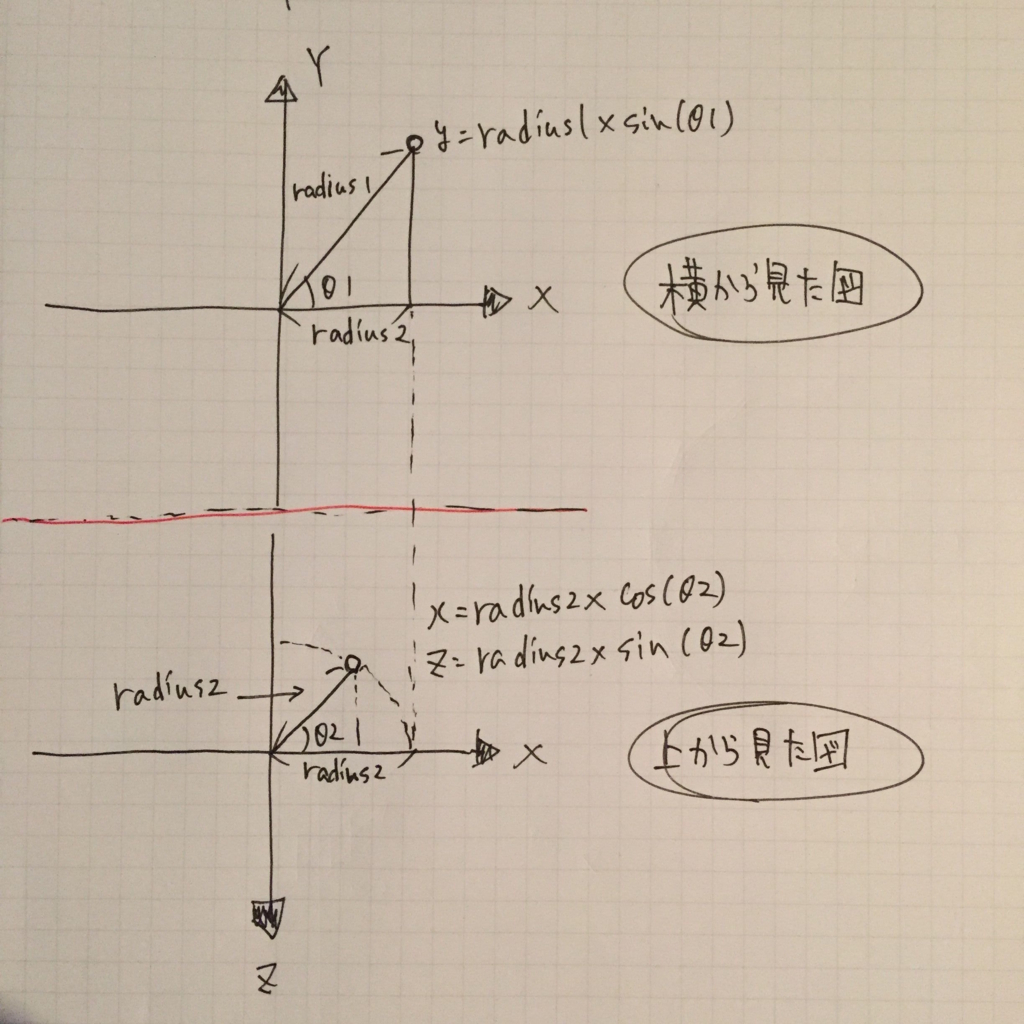 Y
y=radius1×sin(θ1)
radius1
θ1
X
radius2
横から見た図
x=radius2×cos(θ2)
z=radius2×sin(θ2)
radius2
θ2
X
radius2
上から見た図
Z